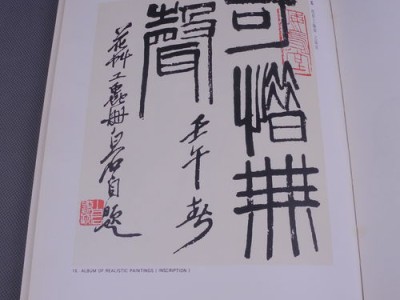 可惜無
聲
壬午春
花艸工蟲冊白石自題
ALBUM OF REALISTIC PAINTINGS ( INSCRIPTION )